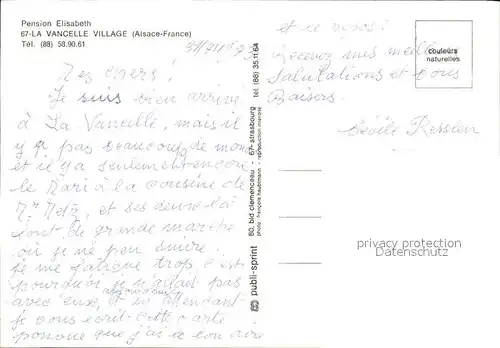 Pension Elisabeth
67-LA VANCELLE VILLAGE (Alsace-France)
Tél. (88) 58.90.61
Mes chers!
Je suis bien arrivé
à La Vancelle, mais il
y a pas beaucoup de mon
et il y a seulement encore
le Mari à la cousine de
Mr Metz, et ses deux là
sont de grande marche
où je ne peu suivre.
je me fatigue trop, c'est
pourquoi je n'allait pas
avec eux, et en attendant
je vous écrit cette carte
pouvue que j'ai le bon aire
et ce repos!
Recevez mes meilleu
Salutations et bons
Baisers.
Cécile Kessler
couleurs
naturelles
publi-sprint 80, bld clemenceau - 67-strasbourg tél. (88) 35.11.64
photo: françois haubtmann - reproduction interdite
privacy protection
Datenschutz